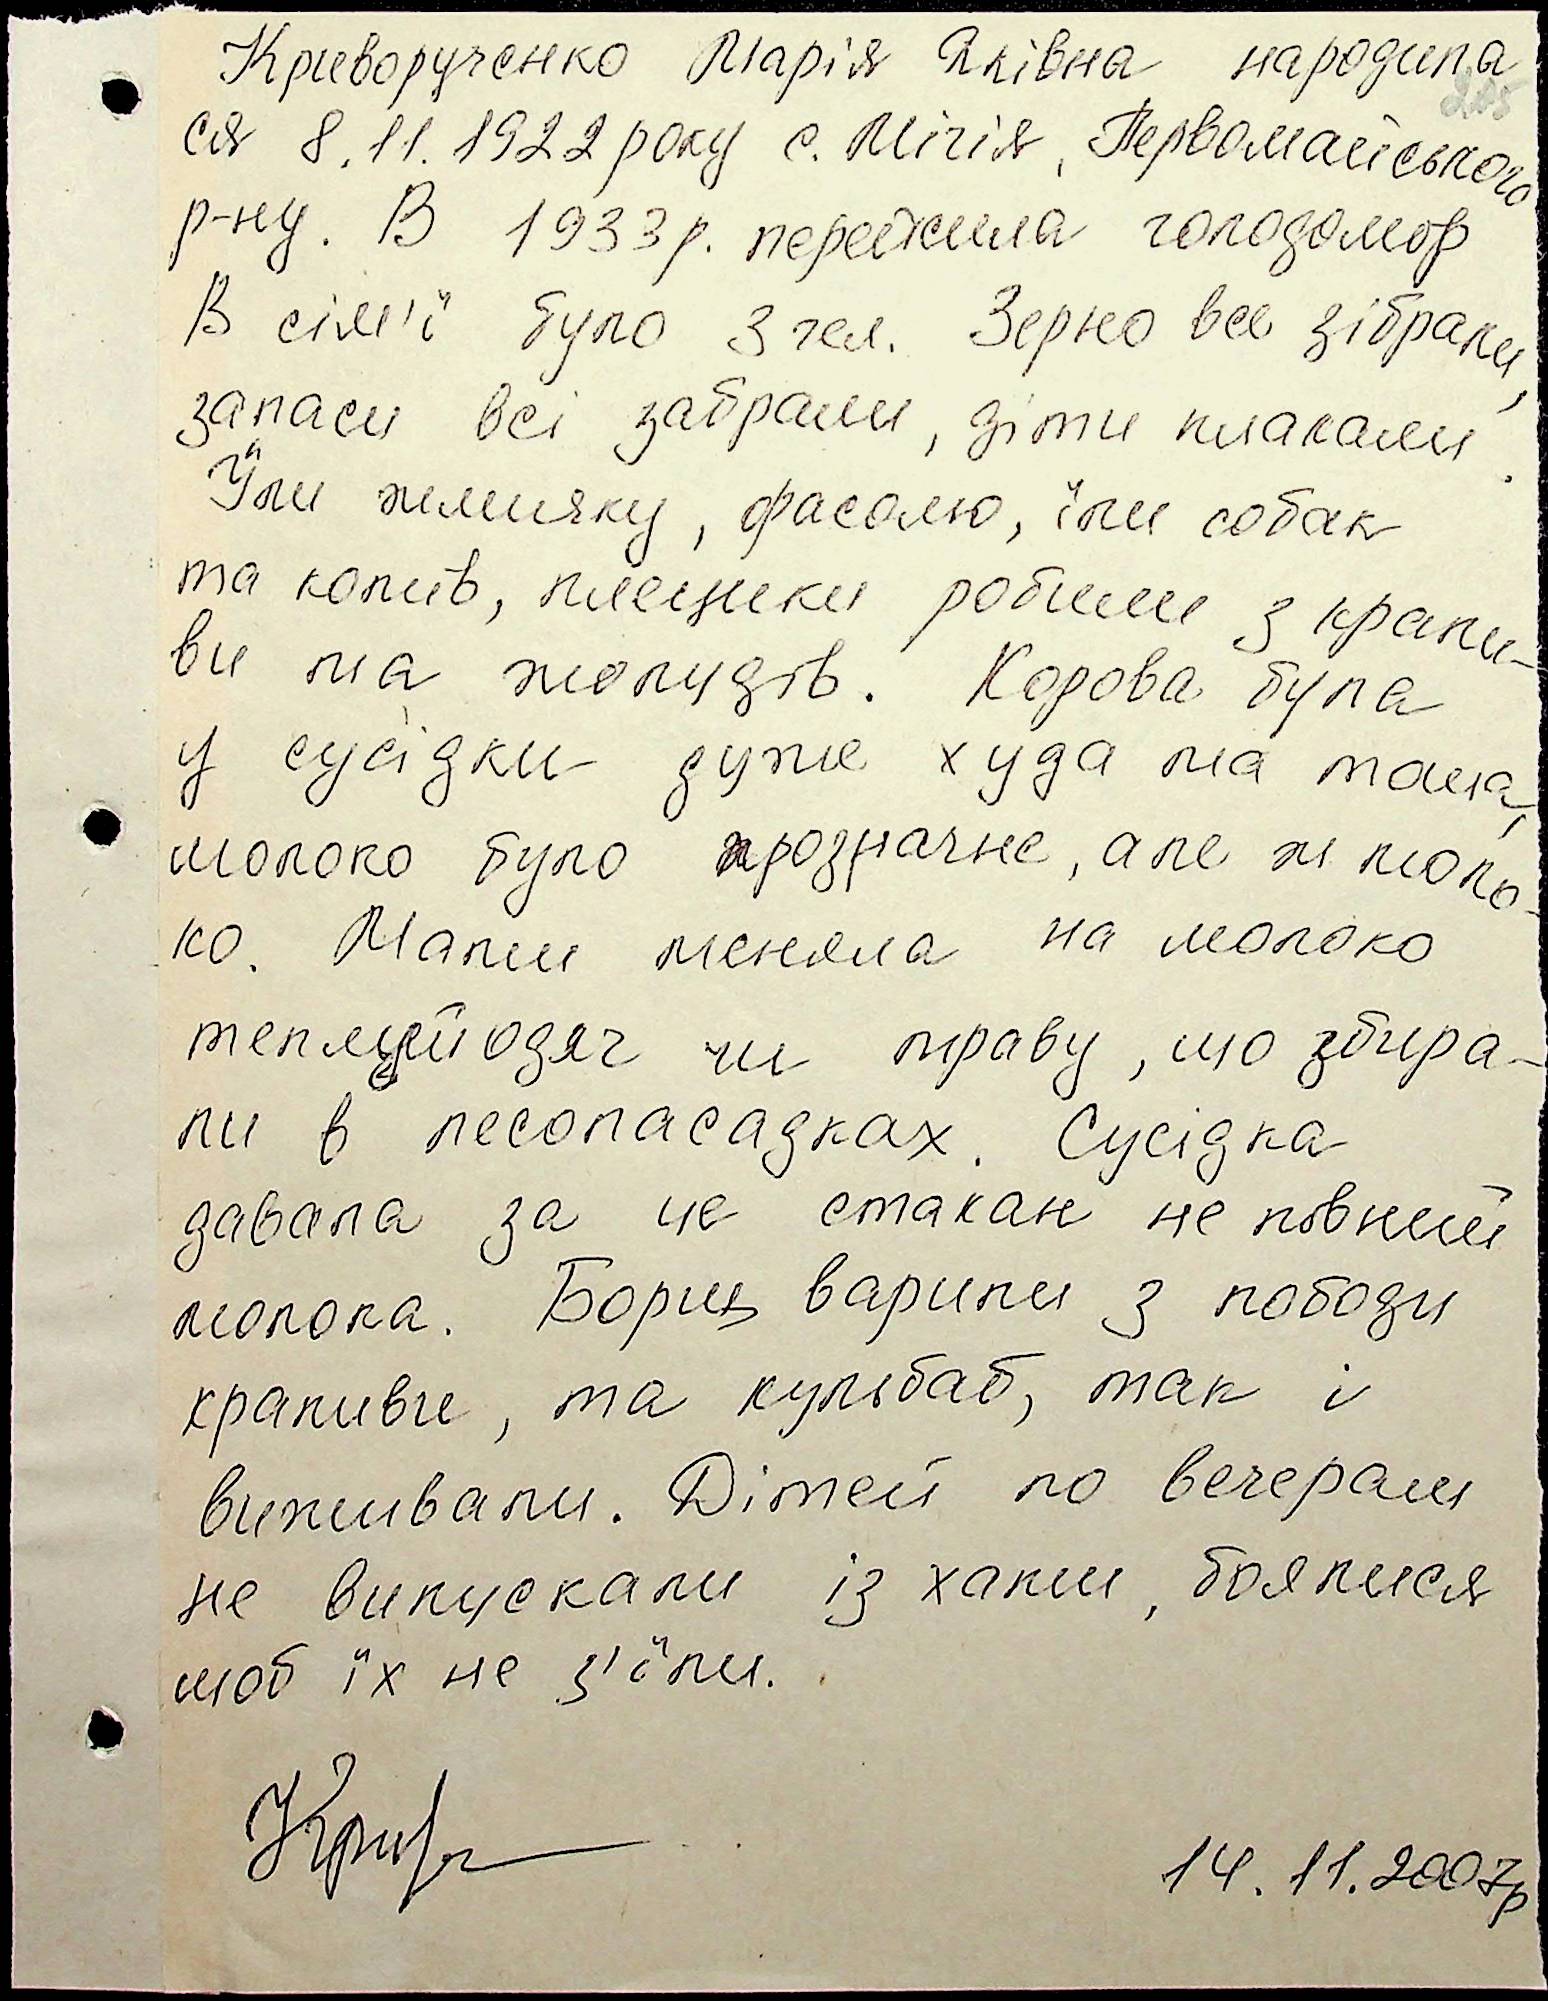 Криворученко Марія Яківна народила
205
ся 8.11.1922 року с. Мігія, Первомайського
р-ну. В 1933 р. пережила голодомор
В сім'ї було 3 чел. Зерно все зібрали,
запаси всі забрали, діти плакали.
Їли жмичку, фасолю, їли собак
та котів, плецики робили з крапи-
ви та жолудів. Корова була
у сусідки дуже худа та мала,
молоко було прозначне, але ж моло-
ко. Мати меняла на молоко
теплий одяг чи траву, що збира-
ли в лесопасадках. Сусідка
давала за це стакан не повний
молока. Борщ варили з лободи
крапиви, та кульбаб, так і
виживали. Дітей по вечерам
не випускали із хати, боялися
щоб їх не з'їли.
14.11.2007р